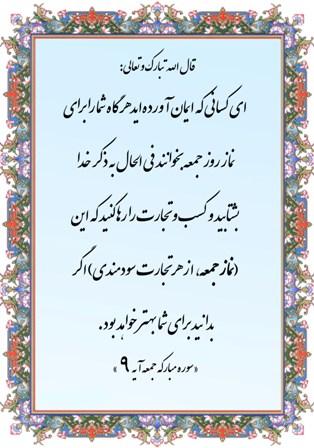 قال الله تبارک و تعالی:
ای کسانی که ایمان آورده اید هرگاه شما را برای
نماز روز جمعه بخوانند فی الحال به ذکر خدا
بشتابید و کسب و تجارت را رها کنید که این
(نماز جمعه، از هر تجارت سودمندی) اگر
بدانید برای شما بهتر خواهد بود.
«سوره مبارکه جمعه آیه ۹»